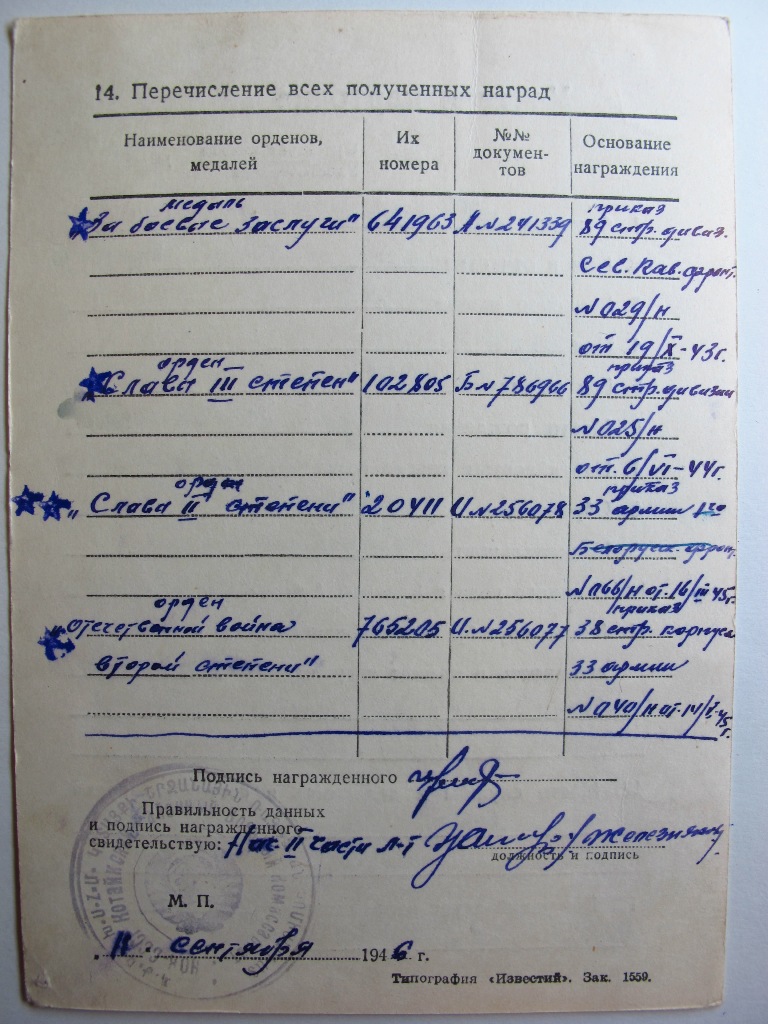 14. Перечисление всех полученных наград
Наименование орденов, медалей
Их номера
№№ документов
Основание награждения
медаль приказ
За боевые заслуги" 641963 А№241339 89 стр. дивиз.
Сев. Кав. фронт.
№029/н
от 19/X-43г.
орден приказ
Славы III степен" 102805 Б№786966 89 стр. дивизии
№025/н
от. 6/VI-44г.
орден приказ
„Слава II степени" 20411 И№256078 33 армии 1го
Белоруск. фронт.
№066/н от. 16/III 45г.
орден приказ
„отечественной война 765205 И.№256077 38 стр. корпуса
второй степени" 33 армии
№040/н от. 14/V-45г.
Подпись награжденного
Правильность данных
и подпись награжденного
свидетельствую: Нач II части л-т
должность и подпись
М. П.
11 сентября 1946 г.
Типография «Известий». Зак. 1559.